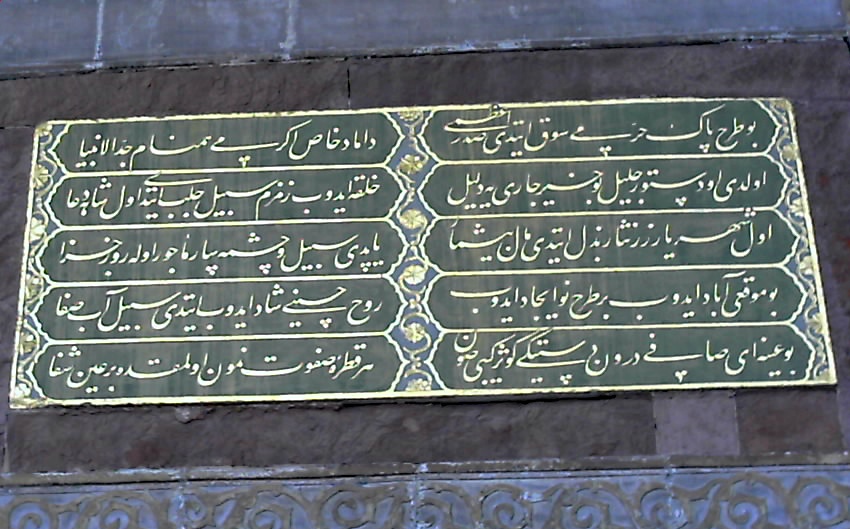 بو طرح پاک خرمی سوق ایتدی صدر اعظمی
داماد خاص اکرمی همنام جد الانبیا
اولدی او دستور جلیل بو خیر جاری یه دلیل
خلقه ایدوب زمزم سبیل جلب ایتدی اول شاهه دعا
اول شهریار زرنثار بذل ایتدی مال بیشمار
یاپدی سبیل و چشمه سار مأجور اوله روز جزا
بو موقعی آباد ایدوب بر طرح نو ایجاد ایدوب
روح حسینی شاد ایدوب ایتدی سبیل آب صفا
بو عینه ای صافی درون دستیکی کوثر کبی صون
هر قطرهٔ صفوت نمون اولمقده بر عین شفا